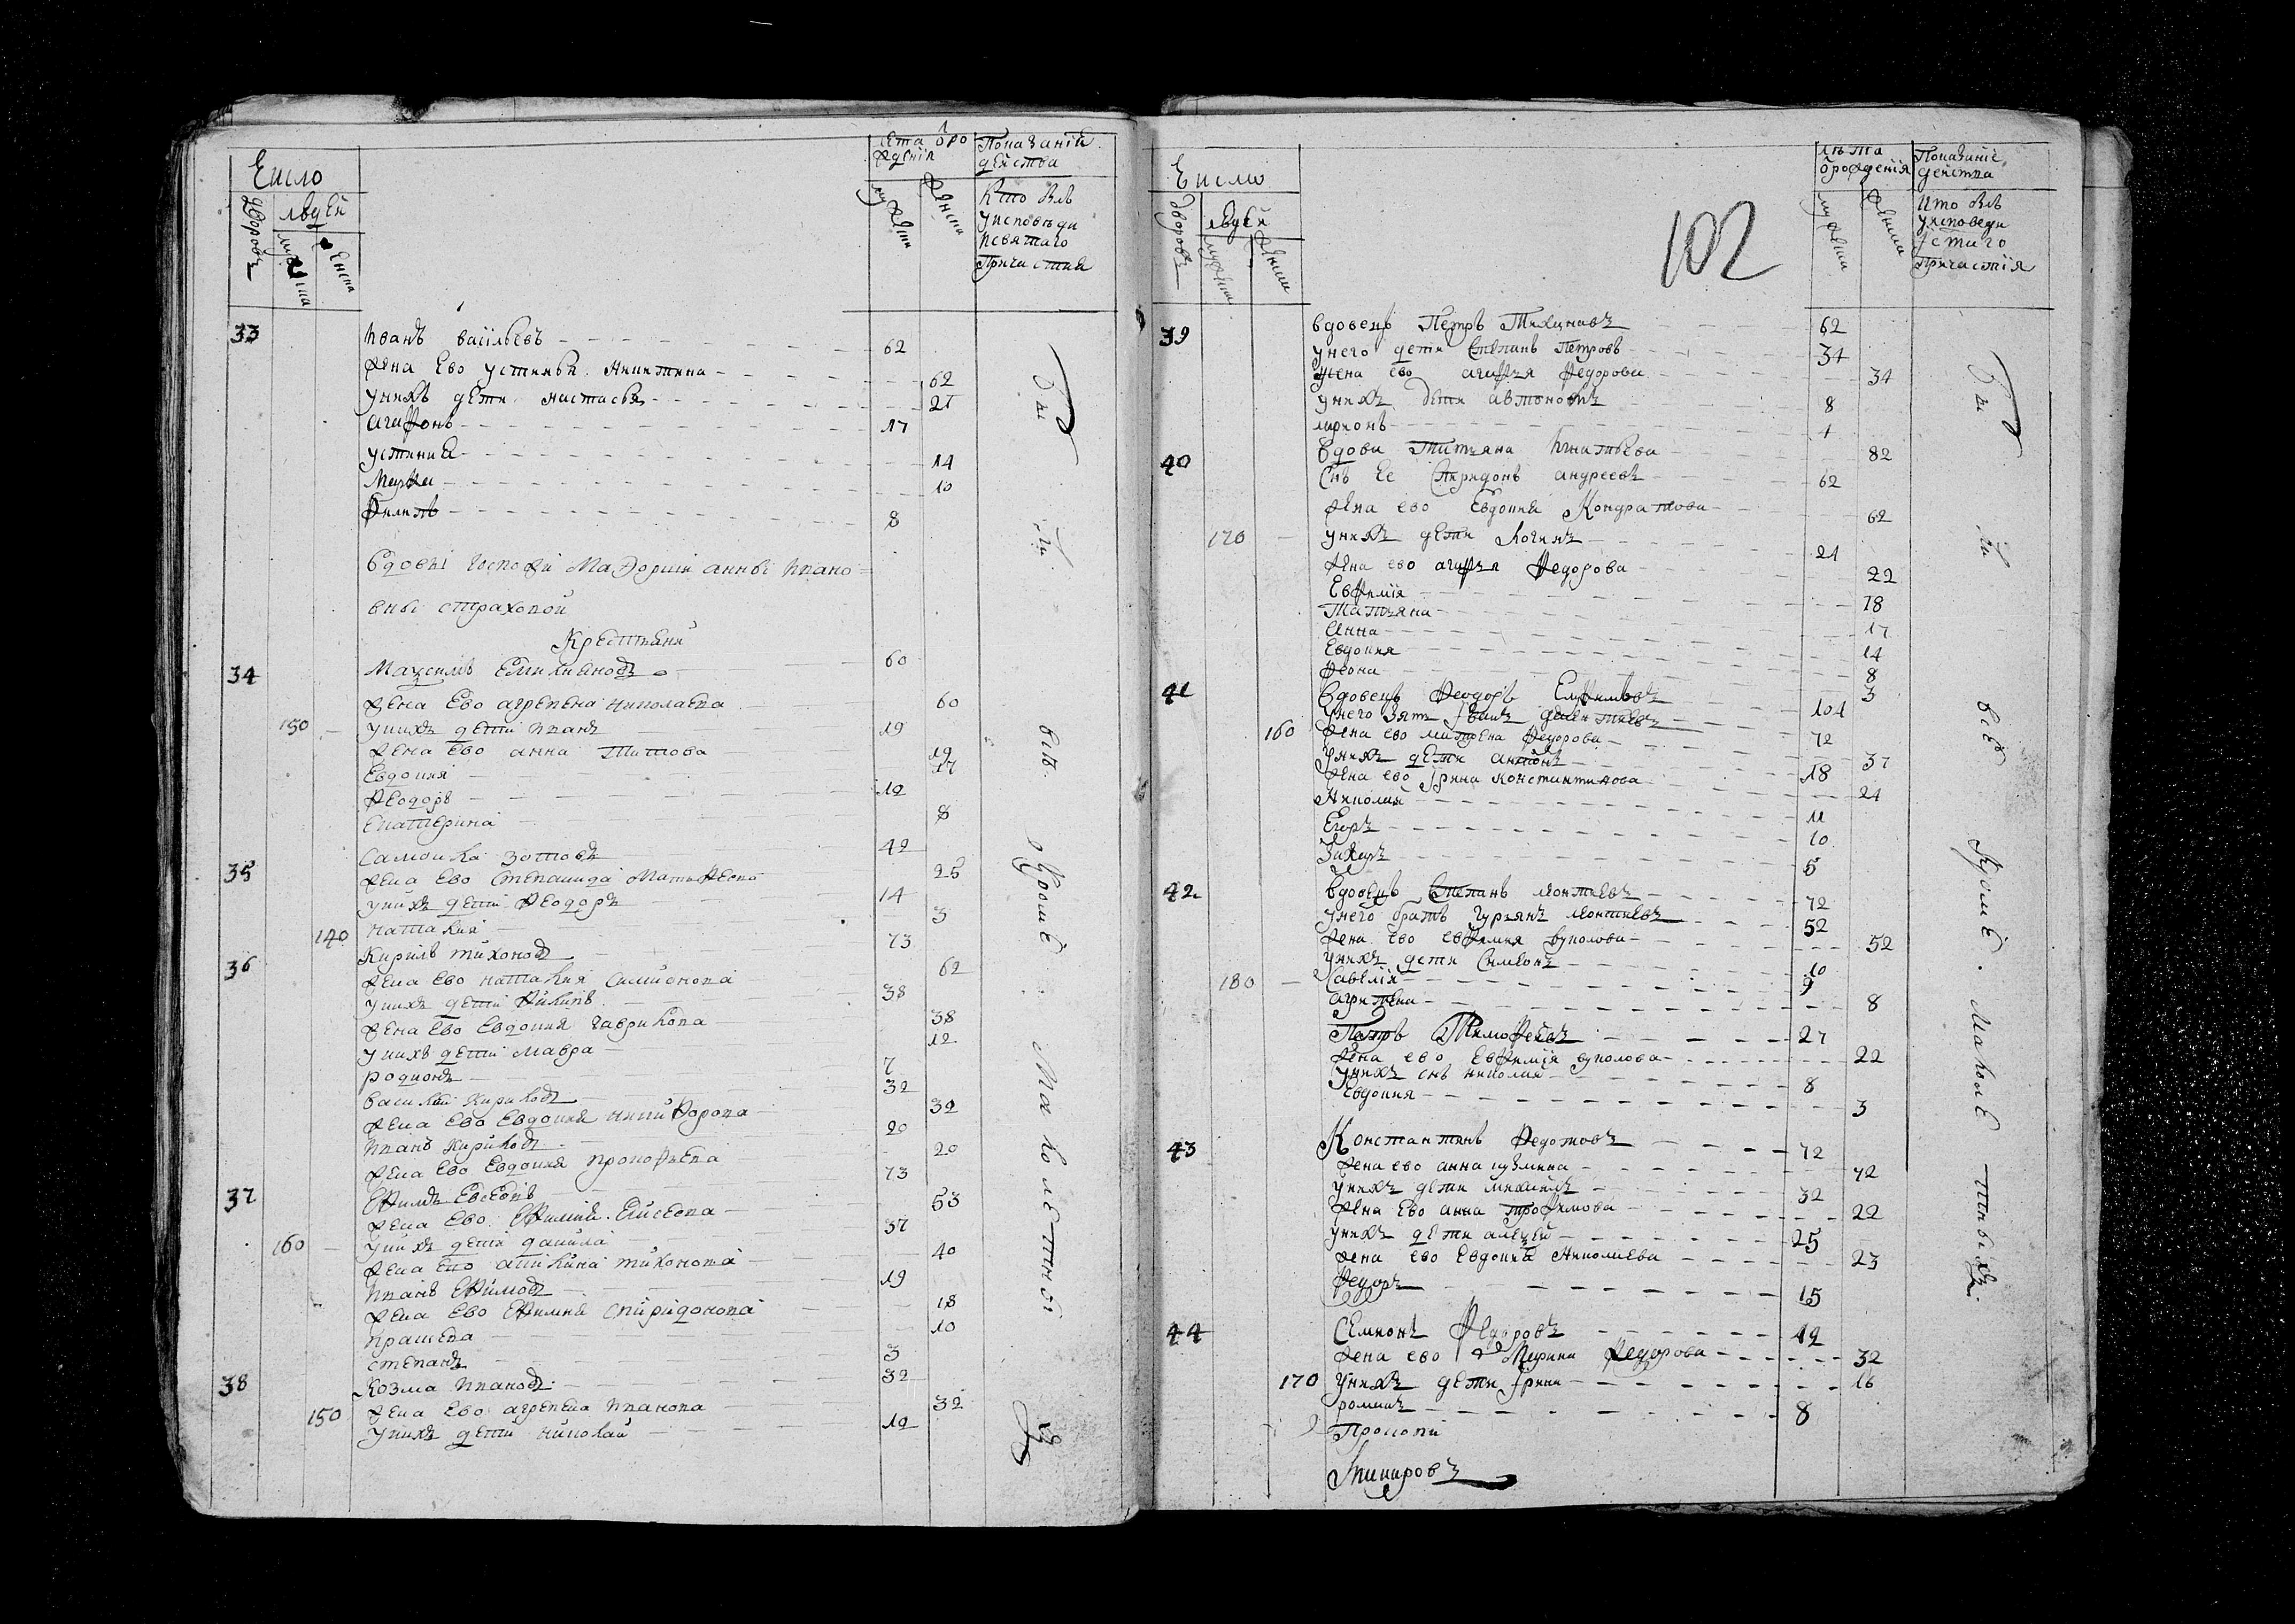 Число
дворовъ
людей
мужеска
женска
лета о ро
ждении
мужеска
женска
Показание
действа
Кто былъ
у исповѣди
и святаго
Причастия
33
Иванъ Васильевъ 62
жена ево Устинья Никитина 62
у нихъ дети Настасья 21
Агафонъ 17
Устиниа 14
Марфа 10
Филипъ 8
Вдовы госпожи маиорши Анны Ивано
вны Страховой
Крестьяни
34 Максимъ Емилиановъ 60
жена ево Агрепена Николаева 60
150 у нихъ дети Иванъ 19
жена ево Анна Титова 19
Евдокия 17
Феодоръ 12
Екатерина 8
35 Самоила Зотовъ 42
жена ево Степанида Матвеева 25
у нихъ дети Феодоръ 14
140 Наталия 3
36 Кирилъ Тихоновъ 73
жена ево Наталия Симионова 62
у нихъ дети 38
жена ево Евдокия Гаврилова 38
у нихъ дети Мавра 12
Родионъ 7
Василий Кириловъ 32
жена ево Евдокия Никифорова 32
Иванъ Кириловъ 20
жена ево Евдокия Прокофьева 20
37 Ефимъ Евсеевъ 73
жена ево Ефимия 53
160 у нихъ дети Данила 37
жена ево Акилина Тихонова 40
Иванъ Ефимовъ 19
жена ево Ефимия Спиридонова 18
10
Степанъ 3
38 Козма Ивановъ 32
150 жена ево Агрепена Иванова 32
у нихъ дети Николай 12
Были
все
кроме
малолетны
хъ
Число
дворовъ
людей
мужеска
женска
102
лѣта
о рождения
мужеска
женска
Показание
действа
Кто былъ
у исповеди
и стаго
Причастия
39 Вдовецъ Петръ 62
у него дети Степанъ Петровъ 34
жена ево Агафья Федорова 34
у нихъ дети Автономъ 8
Ларионъ 4
40 Вдова Татьяна Игнатьева 82
Снъ ее Спиридонъ Андреевъ 62
жена ево Евдокия Кондратова 62
170 у нихъ дети Логинъ 21
жена ево Агафья Федорова 22
Евфимия 18
Татьяна 17
Анна 14
Евдокия 8
3
41 Вдовецъ Феодоръ 104
у него зять Иванъ 72
160 жена ево Матрена Федорова 37
у нихъ дети Антонъ 18
жена ево Ирина Константинова 24
Николай 11
Егоръ 10
Захаръ 5
42 Вдовецъ Степанъ Леонтьевъ 72
у него братъ Гурьянъ Леонтьевъ 52
жена ево Евфимия Вуколова 52
у нихъ дети Симеонъ 10
180 Савелий 9
Агрипена 8
Петръ Тимофеевъ 27
жена ево Евфимия Вуколова 22
у нихъ снъ Николай 8
Евдокия 3
43 Константинъ Федотовъ 72
жена ево Анна Кузмина 72
у нихъ дети Михаилъ 32
жена ево Анна Трофимова 22
у нихъ дети Алексей 25
жена ево Евдокия Николаева 23
Федоръ 15
44 Семионъ Федоровъ 42
жена ево Марина Федорова 32
170 у нихъ дети Ирина 16
Романъ 8
Прокопи
Макаровъ
Были
все
кроме
малолетныхъ